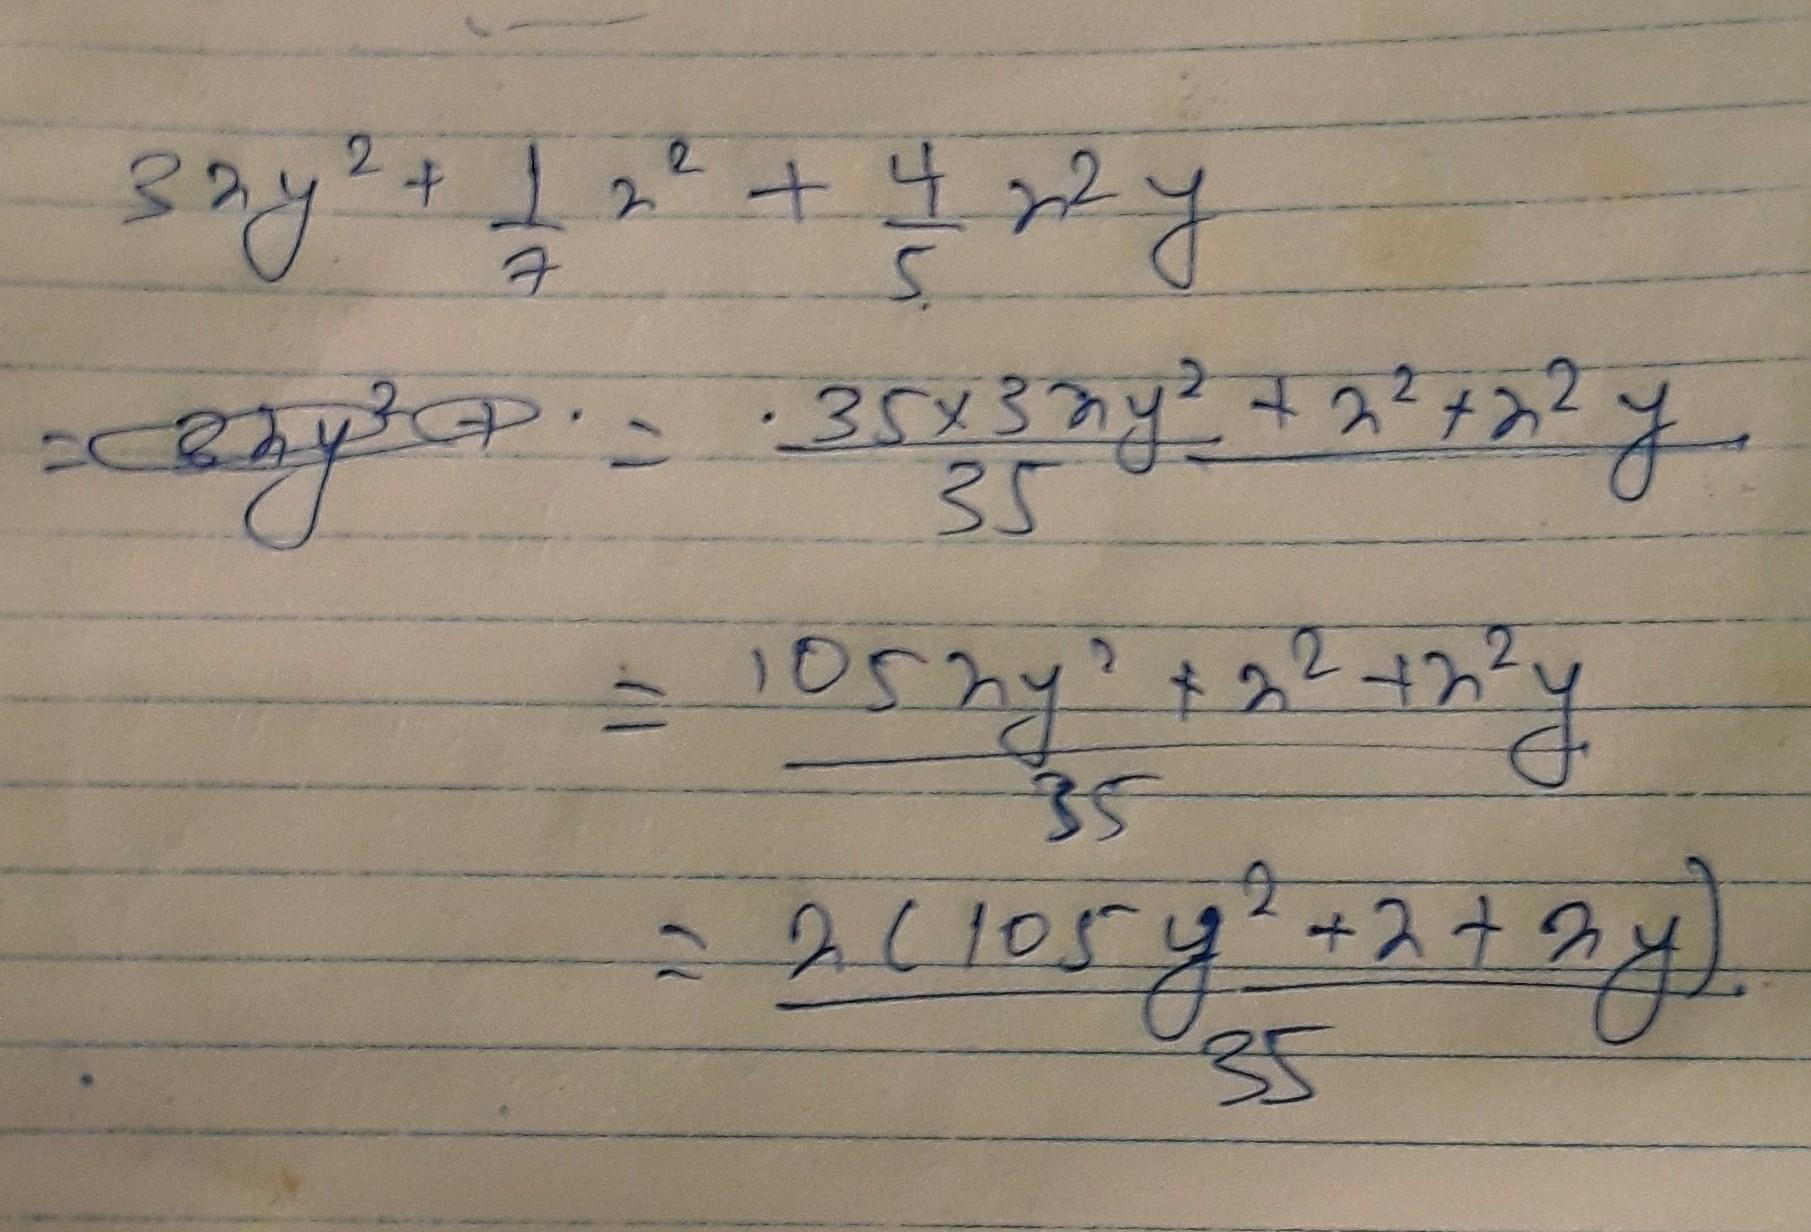 3xy² + 1/7 x² + 4/5 x²y
= 3xy² + = 35×3xy² + x² + x²y / 35
= 105xy² + x² + x²y / 35
= x(105y² + x + xy) / 35